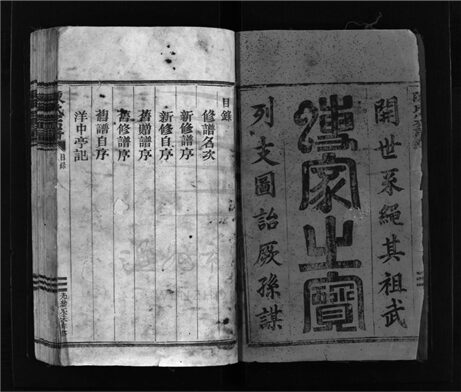 開世系繩其祖武
傳家之寶
列支圖詒厥孫謀
目錄
修譜名次
新修譜序
新修自序
舊贈譜序
舊修譜序
舊譜自序
洋中亭記
目錄